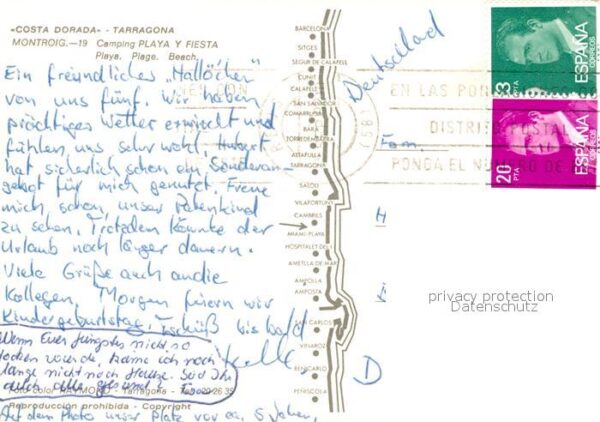 «COSTA DORADA» - TARRAGONA
MONTROIG.—19 Camping PLAYA Y FIESTA
Playa. Plage. Beach.
Ein freundliches "Hallöchen"
von uns fünf. Wir haben
prächtiges Wetter erwischt und
fühlen uns sehr wohl. Hubert
hat sicherlich schon ein Sonderan-
gebot für mich genutzt. Freue
mich schon, unser Patenkind
zu sehen. Trotzdem könnte der
Urlaub noch länger dauern.
Viele Grüße auch an die
Kollegen. Morgen feiern wir
Kindergeburtstag. Tschüß bis bald
Wenn Euer Jüngstes nicht so
locken würde, käme ich noch
lange nicht nach Hause. Seid Ihr
auch alle gesund?
Foto Color RAYMOND - Tarragona - 20 26 39
Reproducción prohibida - Copyright
Auf dem Photo unser Platz vor ca. 5 Jahren.
BARCELONA
SITGES
SEGUR DE CALAFELL
CUNIT
CALAFELL
SAN SALVADOR
COMARRUGA
BARA
TORREDEMBARRA
ALTAFULLA
TARRAGONA
SALOU
VILAFORTUNY
CAMBRILS
MIAMI-PLAYA
HOSPITALET DEL I.
AMETLLA DE MAR
AMPOLLA
AMPOSTA
SAN CARLOS
VINAROZ
BENICARLO
PEÑISCOLA
Deutschland
Fam.
H
D
EN LAS PO
DISTRITO POSTAL
PONGA EL NUMERO DE
33
PTA
ESPAÑA
CORREOS
20
PTA
ESPAÑA
CORREOS
privacy protection
Datenschutz